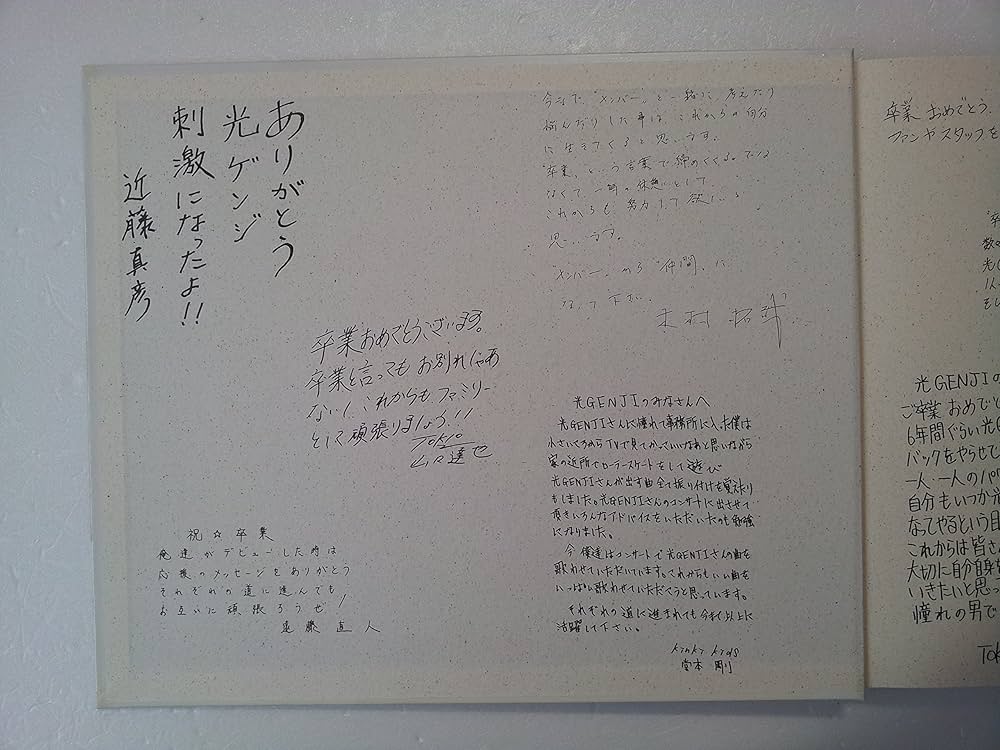 ありがとう
光ゲンジ
刺激になったよ!!
近藤真彦
今まで、"メンバー"と一緒に考えたり
悩んだりした事は、これからの自分
に生きてくると思います。
"卒業"という言葉で締めくくるのでは
なくて、一時の休憩として
これからも努力して欲しいと
思います。
"メンバー"から"仲間"に
なって下さい。
木村拓哉
卒業おめでとうございます。
卒業と言ってもお別れじゃあ
ないし、これからもファミリー
として頑張りましょう!!
TOKIO
山口達也
光GENJIのみなさんへ
光GENJIさんに憧れて事務所に入った僕は
小さいころからTVで見てかっこいいなあと思いながら
家の近所でローラースケートをして遊び
光GENJIさんが出す曲全て振り付けを覚えたり
もしました。光GENJIさんのコンサートに出させて
頂きいろんなアドバイスをいただいたのも勉強
になりました。
今、僕達はコンサートで光GENJIさんの曲を
歌わせていただいています。これからもいい曲を
いっぱい歌わせていただこうと思っています。
それぞれの道に進まれても今まで以上に
活躍して下さい。
Kinki Kids
堂本 剛
祝☆卒業
俺達がデビューした時は
応援のメッセージをありがとう
それぞれの道に進んでも
お互いに頑張ろうぜ!
遠藤直人
卒業おめでとう.
ファンやスタッフを
光GENJIの
ご卒業おめでと
6年間ぐらい光G
バックをやらせて
一人一人のパ
自分もいつか光
なってやるという目
これからは皆さ
大切に自分自身
いきたいと思っ
憧れの男で